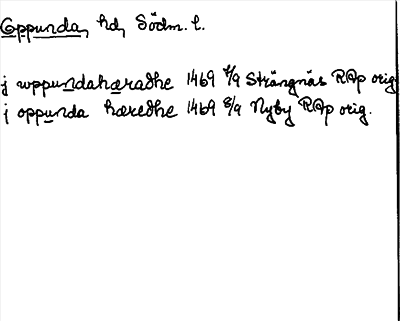 Oppunda, hd, Södm. l.
j wppundahæradhe 1469 4/9 Strängnäs RAp orig
j oppunda hæredhe 1469 8/9 Nyby RAp orig.